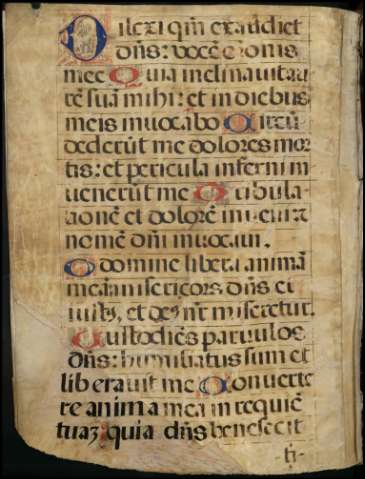 Dilexi qm̄ exaudiet
dn̄s: vocē or̄onis
mee Quia inclinavit au
rē suā mihi: et in diebus
meis invocabo Circū
dederūt me dolores mor
tis: et pericula inferni in
venerūt me Tribula
tionē et dolorē inveni: et
nomē dn̄i invocavi.
O domine libera animā
meā: misericors dn̄s et
iustꝰ, et de9 nr̄ miseretur.
Custodiēs parvulos
dn̄s: humiliatus sum et
liberavit me Converte
re anima mea in requiē
tuaz quia dn̄s benefecit
-ti-